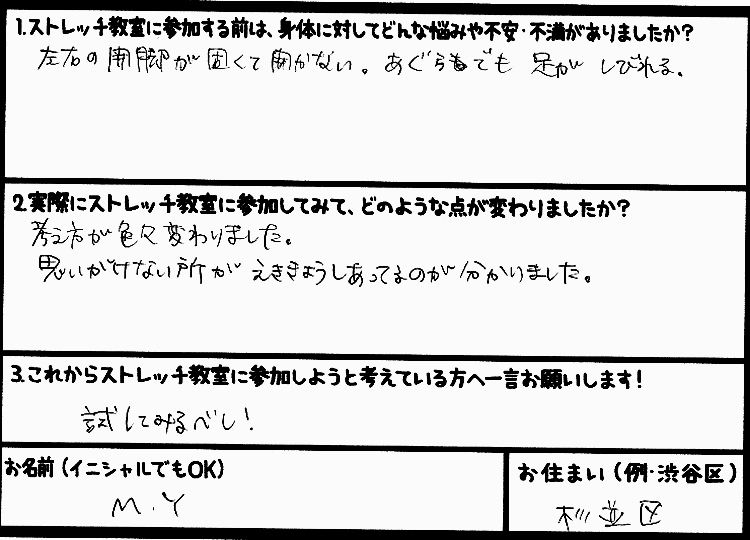 1.ストレッチ教室に参加する前は、身体に対してどんな悩みや不安・不満がありましたか?
左右の開脚が固くて開かない。あぐらでも足がしびれる。
2.実際にストレッチ教室に参加してみて、どのような点が変わりましたか?
考え方が色々変わりました。
思いがけない所がえききょうしあってるのが分かりました。
3.これからストレッチ教室に参加しようと考えている方へ一言お願いします!
試してみるべし!
お名前(イニシャルでもOK)
M.Y
お住まい(例・渋谷区)
杉並区